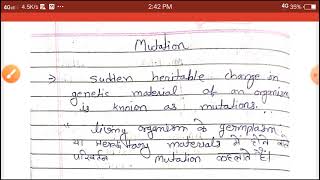 4G 4.5K/s 2:42 PM 4G 35%
Mutation
→ Sudden heritable change in
genetic material of an organism
is known as mutations.
"living organism के germplasm
या Hereditary materials में होने वाले
परिवर्तन Mutation कहलाते हैं।